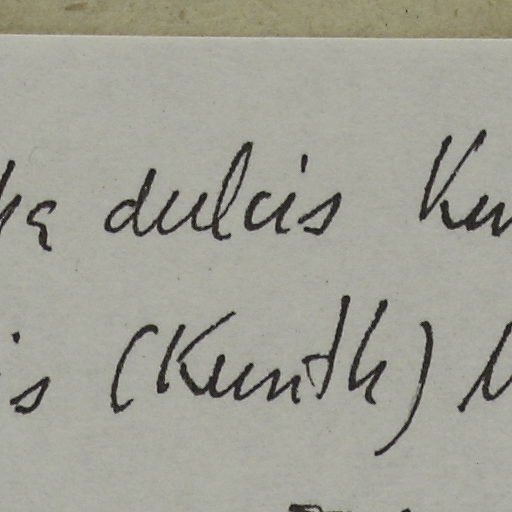 dulcis Kun
is (Kunth)